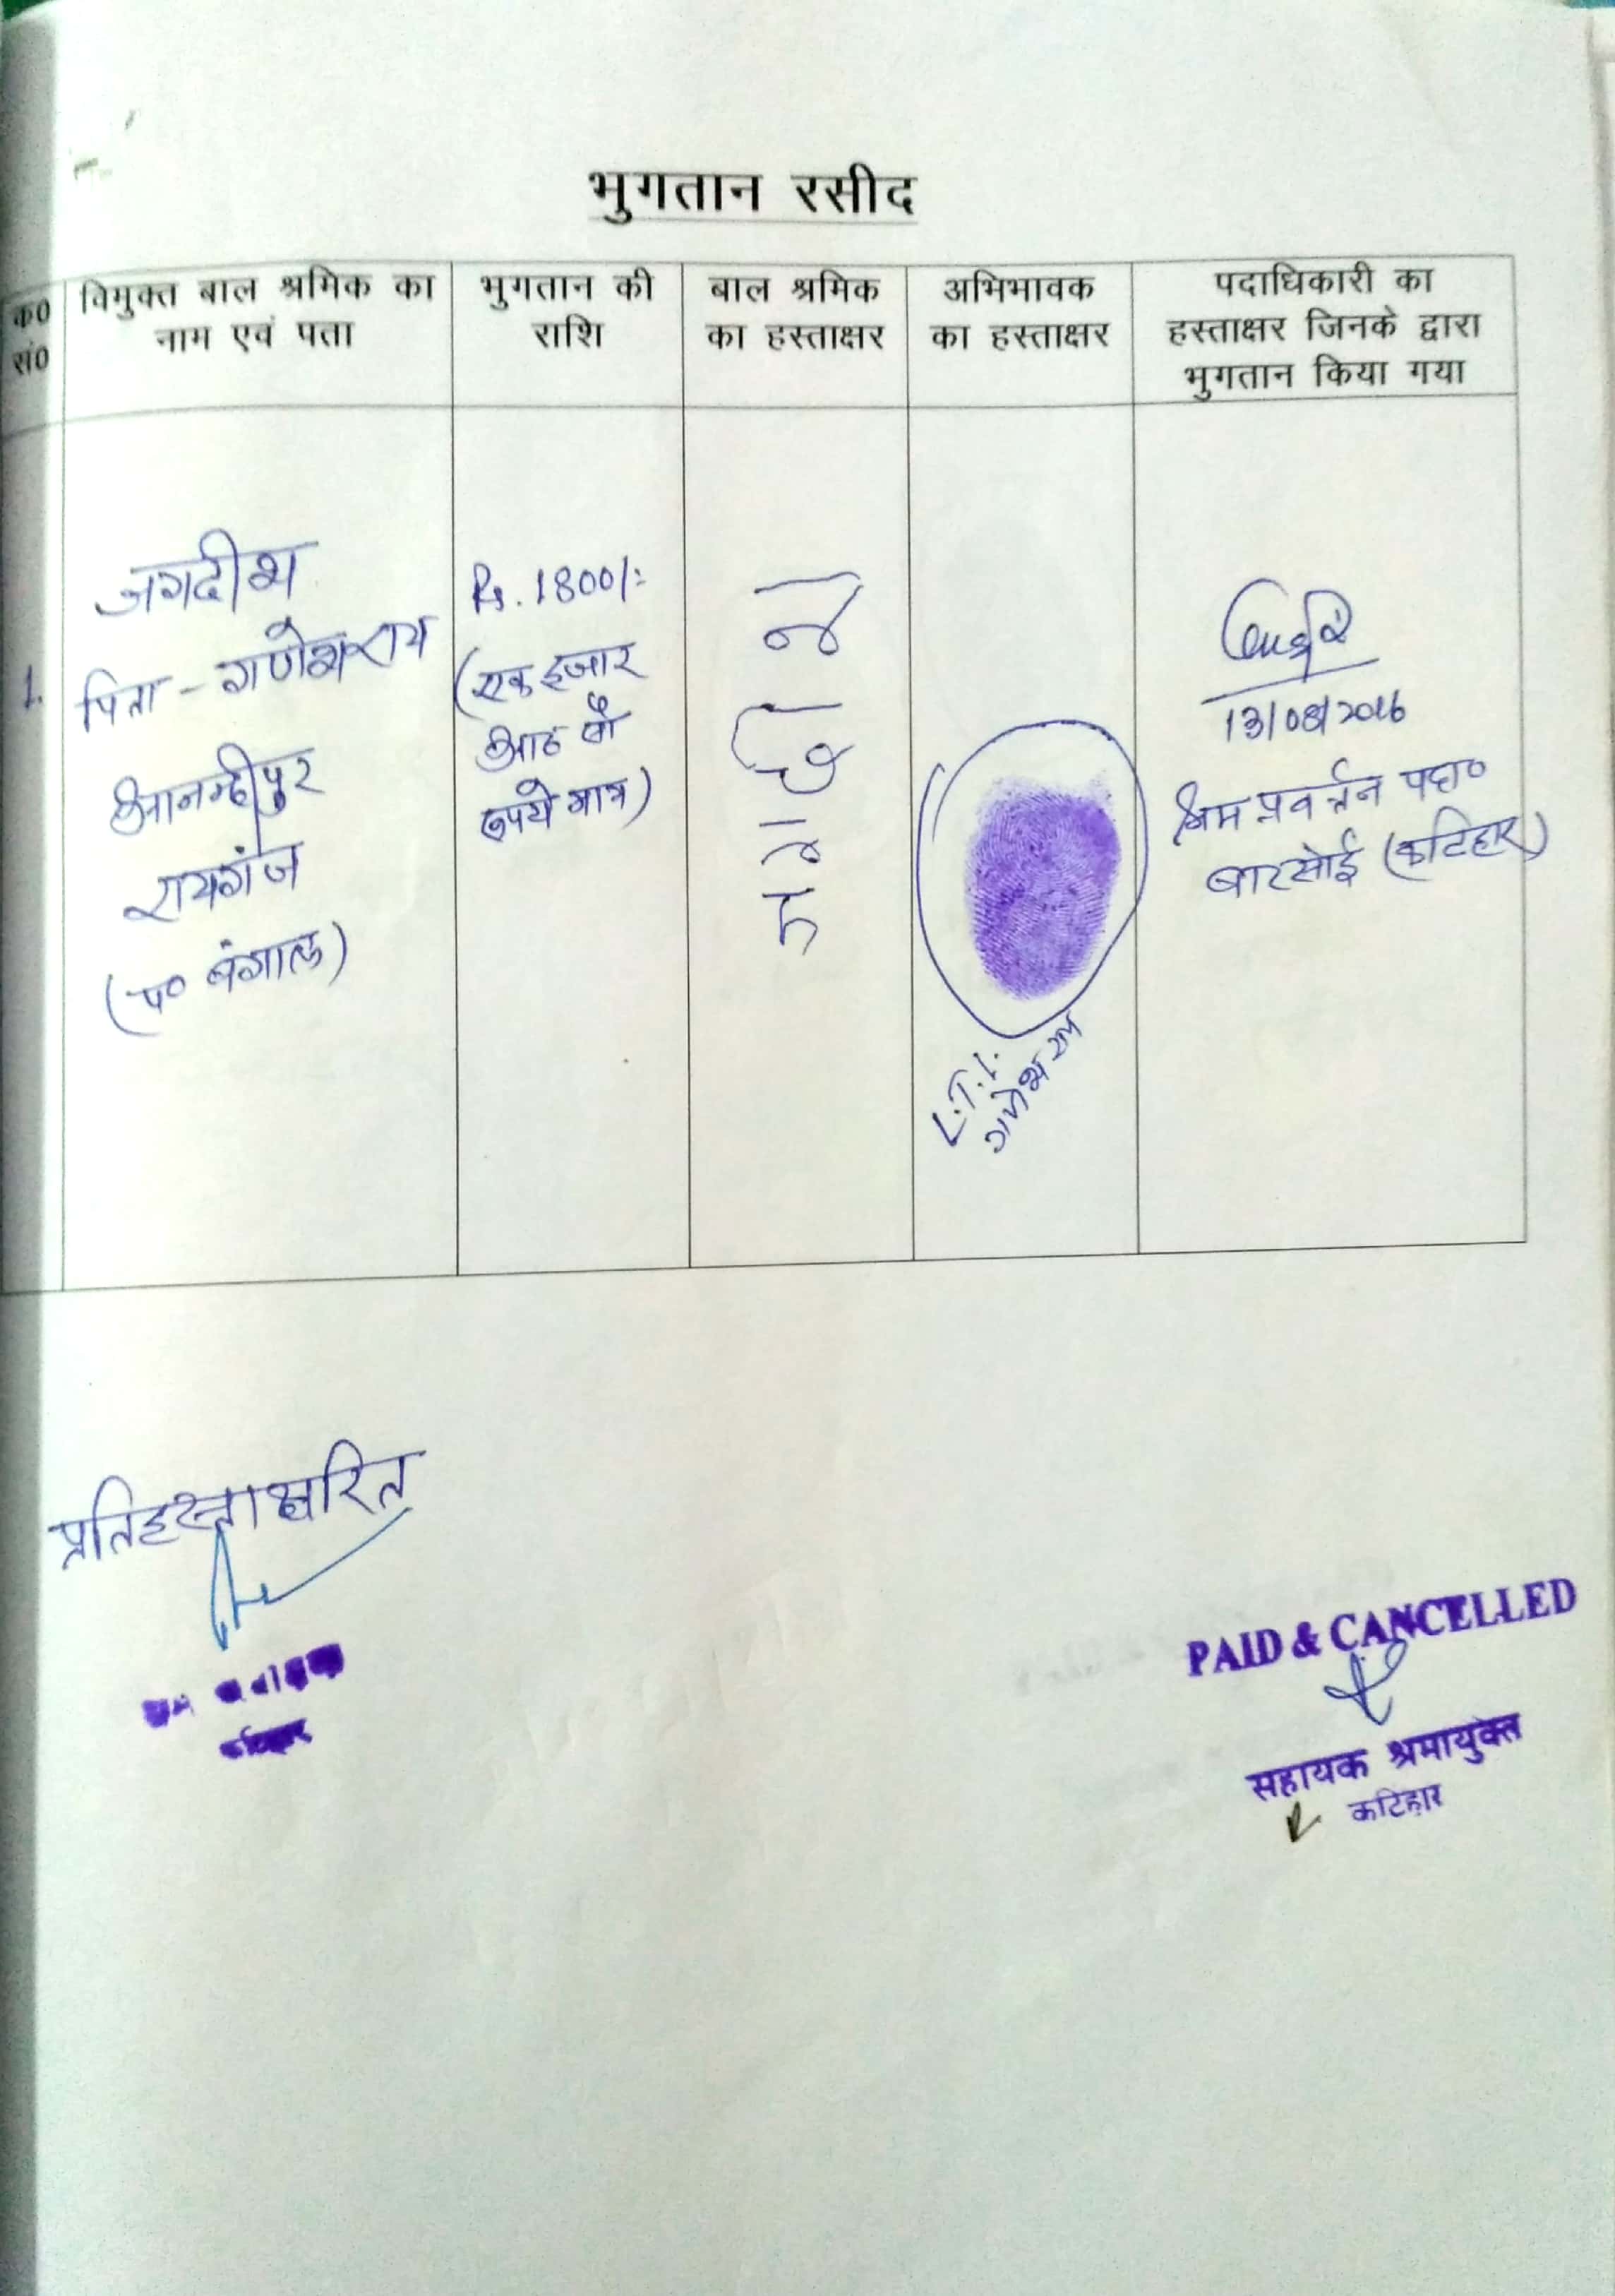 भुगतान रसीद
क0 सं0
विमुक्त बाल श्रमिक का
नाम एवं पता
भुगतान की
राशि
बाल श्रमिक
का हस्ताक्षर
अभिभावक
का हस्ताक्षर
पदाधिकारी का
हस्ताक्षर जिनके द्वारा
भुगतान किया गया
1.
जगदीश
पिता - गणेश राय
रायगंज
(प० बंगाल)
Rs. 1800/-
(एक हजार
आठ सौ
रुपये मात्र)
L.T.I.
गणेश राय
13/08/2016
श्रम प्रवर्तन पदा०
बारसोई (कटिहार)
प्रतिहस्ताक्षरित
PAID & CANCELLED
सहायक श्रमायुक्त
कटिहार